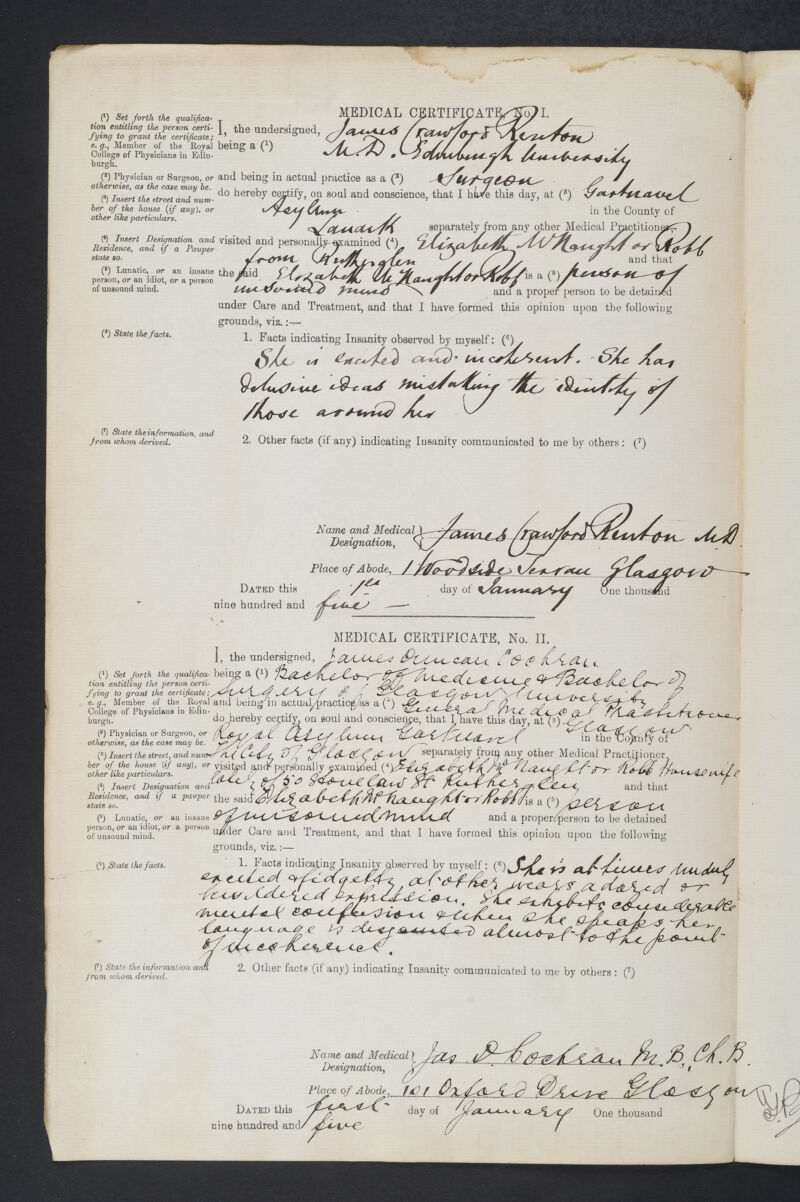 MEDICAL CERTIFICATE, No. I.
(1) Set forth the qualifica-
tion entitling the person certi-
fying to grant the certificate;
e.g., Member of the Royal
College of Physicians in Edin-
burgh.
I, the undersigned, James Crawford Renton
being a (1) M.D. Edinburgh University
(2) Physician or Surgeon, or
otherwise, as the case may be.
and being in actual practice as a (2) Surgeon
(3) Insert the street and num-
ber of the house (if any), or
other like particulars.
do hereby certify, on soul and conscience, that I have this day, at (3) Gartnavel
Asylum in the County of
Lanark separately from any other Medical Practitioner,
(4) Insert Designation and
Residence, and if a Pauper
state so.
visited and personally examined (4) Elizabeth McNaught or Robb
from Rutherglen and that
(5) Lunatic, or an insane
person, or an idiot, or a person
of unsound mind.
the said Elizabeth McNaught or Robb is a (5) person of
unsound mind and a proper person to be detained
under Care and Treatment, and that I have formed this opinion upon the following
grounds, viz.:—
(6) State the facts.
1. Facts indicating Insanity observed by myself: (6)
She is excited and incoherent. She has
delusive ideas mistaking the identity of
those around her
(7) State the information, and
from whom derived.
2. Other facts (if any) indicating Insanity communicated to me by others: (7)
Name and Medical Designation, James Crawford Renton M.D.
Place of Abode, 1 Woodside Terrace Glasgow
DATED this 1st day of January One thousand
nine hundred and five —
MEDICAL CERTIFICATE, No. II.
I, the undersigned, James Duncan Cochran
(1) Set forth the qualifica-
tion entitling the person certi-
fying to grant the certificate;
e.g., Member of the Royal
College of Physicians in Edin-
burgh.
being a (1) Bachelor of Medicine & Bachelor of
Surgery of Glasgow University
and being in actual practice as a (2) General Medical Practitioner
(2) Physician or Surgeon, or
otherwise, as the case may be.
do hereby certify, on soul and conscience, that I have this day, at (3) Glasgow
Royal Asylum Gartnavel in the County of
(3) Insert the street, and num-
ber of the house (if any), or
other like particulars.
City of Glasgow separately from any other Medical Practitioner,
visited and personally examined (4) Elizabeth Mc Naught or Robb Housewife
(4) Insert Designation and
Residence, and if a pauper
state so.
of 50 Stonelaw St Rutherglen and that
the said Elizabeth Mc Naught or Robb is a (5) person
(5) Lunatic, or an insane
person, or an idiot, or a person
of unsound mind.
of unsound mind and a proper person to be detained
under Care and Treatment, and that I have formed this opinion upon the following
grounds, viz.:—
(6) State the facts.
1. Facts indicating Insanity observed by myself: (6) She is at times unduly
excited & fidgetty at other wears a dazed or
bewildered expression. She exhibits considerable
mental confusion & when she speaks her
language is almost to the point
of incoherence.
(7) State the information and
from whom derived.
2. Other facts (if any) indicating Insanity communicated to me by others: (7)
Name and Medical Designation, Jas. D. Cochran M.B., Ch.B.
Place of Abode, 101 Oxford Drive Glasgow
DATED this first day of January One thousand
nine hundred and five